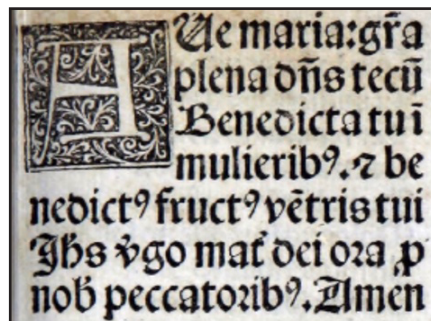 AUe maria: gr̃a
plena dñs tecũ
Benedicta tu ĩ
mulieribꝰ. ⁊ be
nedictꝰ fructꝰ vẽtris tui
Jhs v̾go mat᷑ dei ora ꝓ
nob̵ peccatoribꝰ. Amen